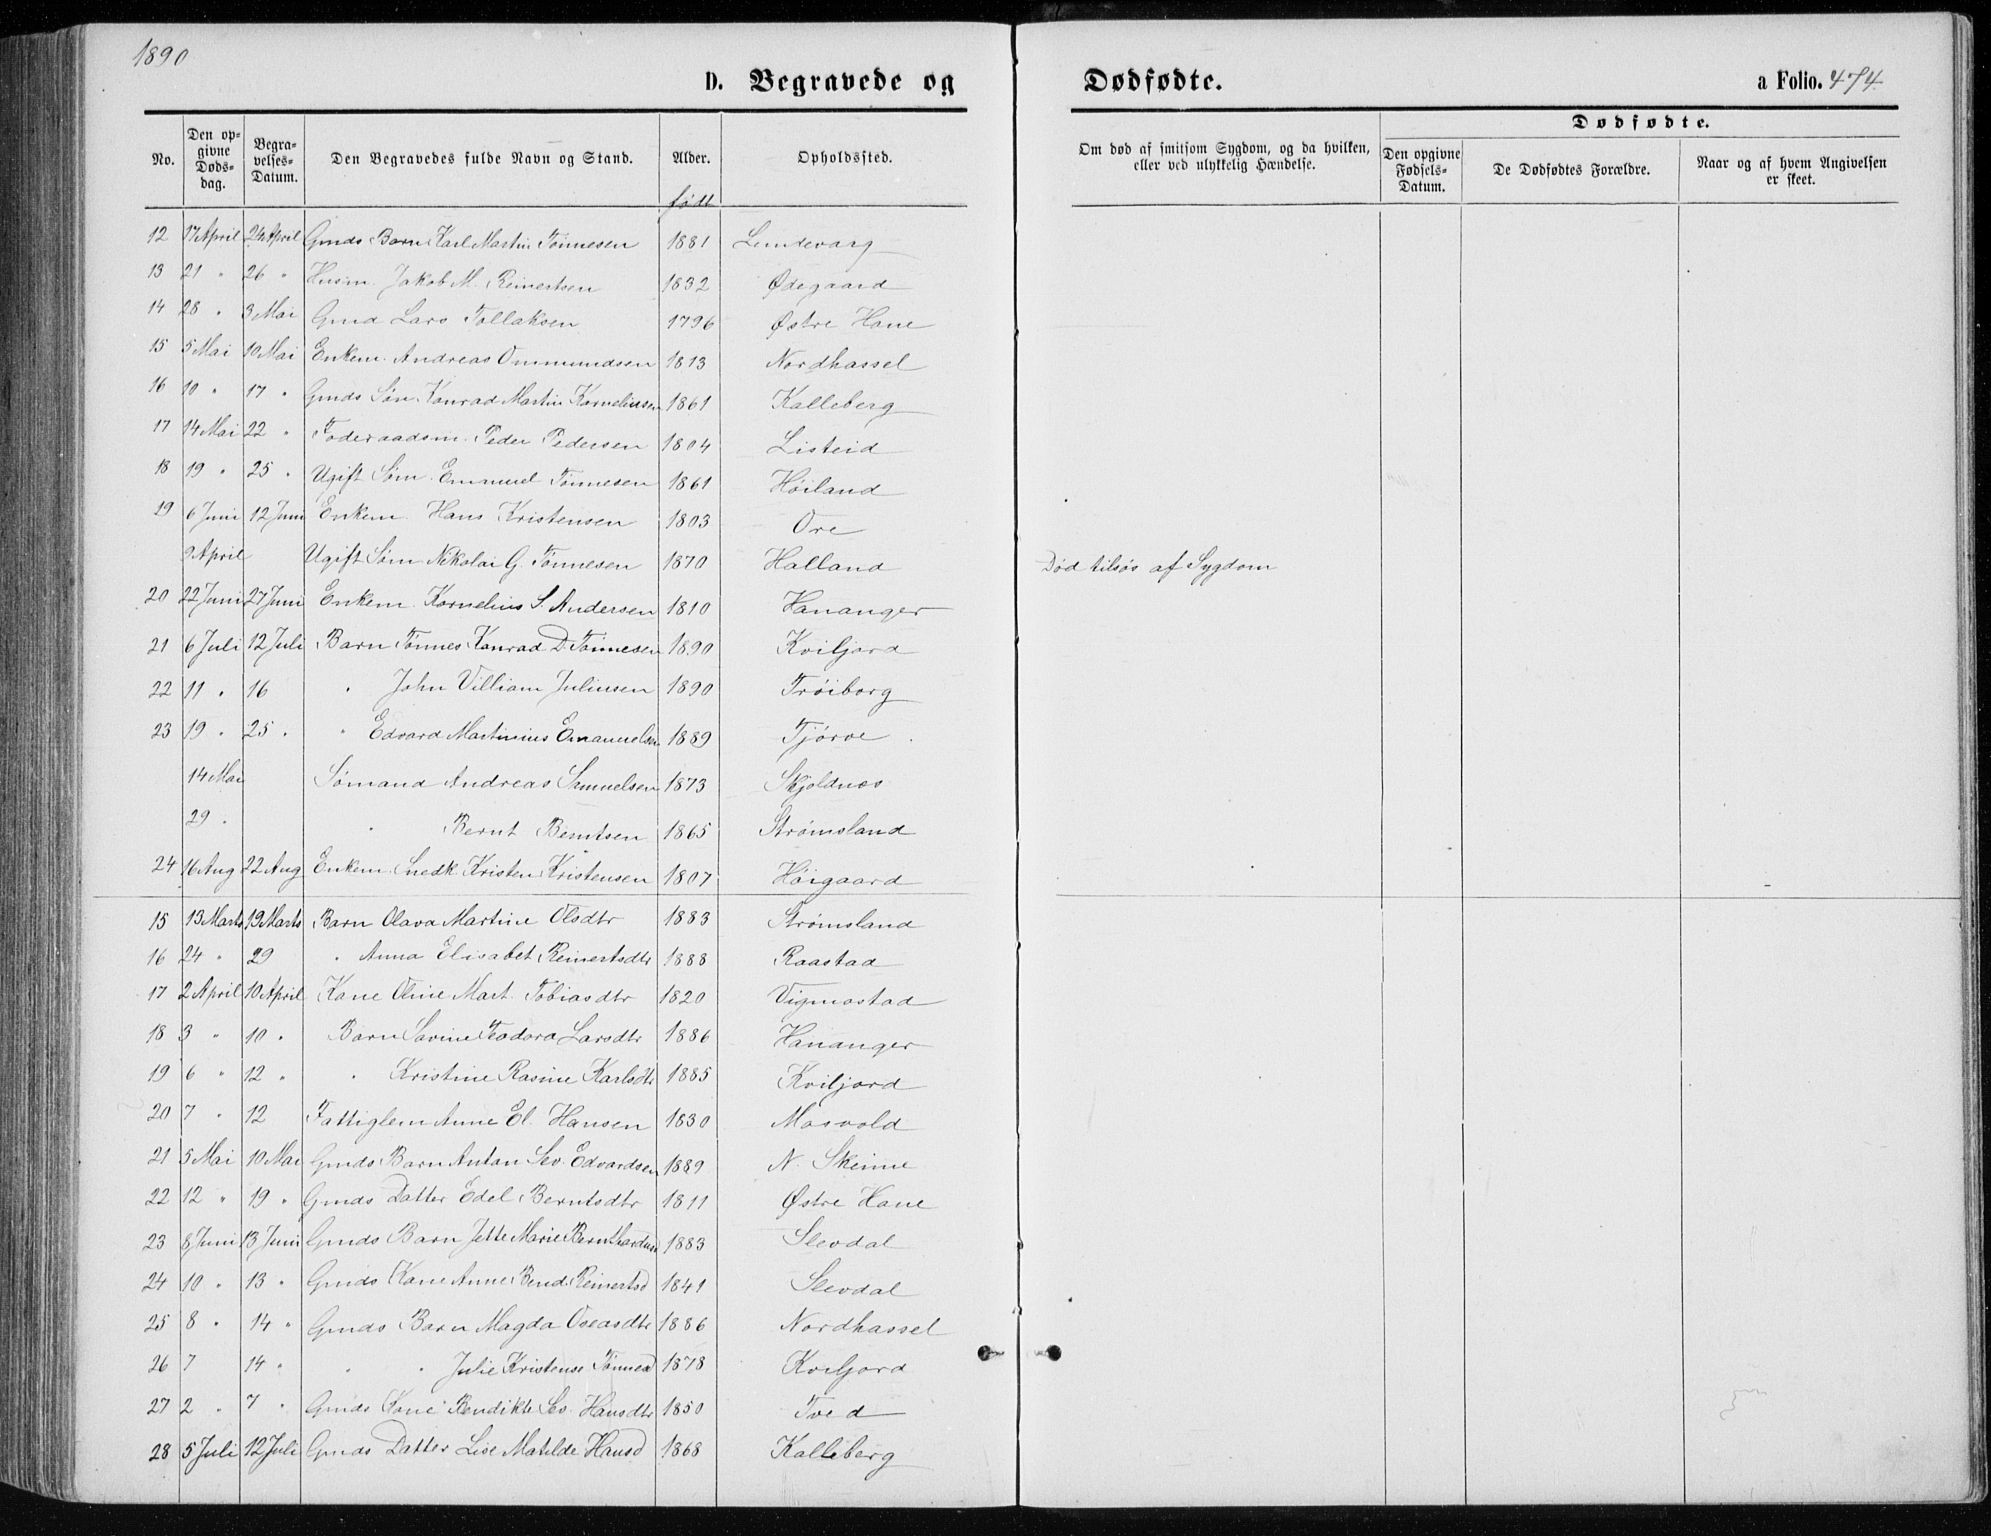 1890
D. Begravede og Dødfødte. a Folio. 474.
No. Den opgivne Dødsdag. Begravelses-Datum. Den Begravedes fulde Navn og Stand. Alder. født Opholdssted. Om død af smitsom Sygdom, og da hvilken, eller ved ulykkelig Hændelse. Dødfødte. Den opgivne Fødsels-Datum. De Dødfødtes Forældre. Naar og af hvem Angivelsen er skeet.
12 17 April 24 April Gmds Barn Karl Martin Tønnesen 1881 Lundevaag
13 21 " 26 " Husm. Jakob M. Reinertsen 1832 Ødegaard
14 28 " 3 Mai Gmd Lars Tollaksen 1796 Østre Hane
15 5 Mai 10 Mai Enkem. Andreas Ommundssen 1813 Nordhassel
16 10 " 17 " Gmds Søn Konrad Martin Kornelinssen 1861 Kalleberg
17 14 Mai 22 " Føderaadsm. Peder Pedersen 1804 Listeid
18 19 " 25 " Ugift Søm. Emanuel Tønnesen 1861 Høiland
19 6 Juni 12 Juni Enkem. Hans Kristensen 1803 Ore
9 April Ugift Søm Nikolai G. Tønnesen 1870 Halland Død tilsøs af Sygdom
20 22 Juni 27 Juni Enkem. Kornelius S. Andersen 1810 Hananger
21 6 Juli 12 Juli Barn Tønnes Konrad D. Tønnesen 1890 Kviljord
22 11 " 16 " John Villiam Juliussen 1890 Trøiborg
23 19 " 25 " " Edvard Martinius Emanuelsen 1889 Tjørve
14 Mai Sømand Andreas Samuelsen 1873 Skjoldnes
29 " " Bernt Berntsen 1865 Strømsland
24 16 Aug 22 Aug Enkem. Snedk Kristen Kristensen 1807 Høigaard
15 13 Marts 19 Marts Barn Olava Martine Olsdtr 1883 Strømsland
16 24 " 29 " Anna Elisabet Reinertsdtr 1888 Raastad
17 2 April 10 April Kone Oline Mart. Tobiasdtr 1820 Vigmostad
18 3 " 10 " Barn Sarine Teodora Larsdtr 1886 Hananger
19 6 " 12 " " Kristine Rasine Karlsdtr 1885 Kviljord
20 7 " 12 Fattiglem Anne El. Hansen 1830 Mosvold
21 5 Mai 10 Mai Gmds Barn Antan Sev. Edvardsen 1889 N. Skeime
22 12 " 19 " Gmds Datter Edel Berntsdtr 1811 Østre Hane
23 8 Juni 13 Juni Gmds Barn Jette Marie Bernhardsd 1883 Slevdal
24 10 " 13 " Gmds Kone Anne Bend. Reinertsd 1841 Slevdal
25 8 " 14 " Gmds Barn Magda Oseasdtr 1886 Nordhassel
26 7 14 " " " Julie Kristense Tønnesd 1878 Kviljord
27 2 " 7 " Gmds Kone Bendikte Sev. Hansdtr 1850 Tved
28 5 Juli 12 Juli Gmds Datter Lise Matilde Hansd 1868 Kalleberg